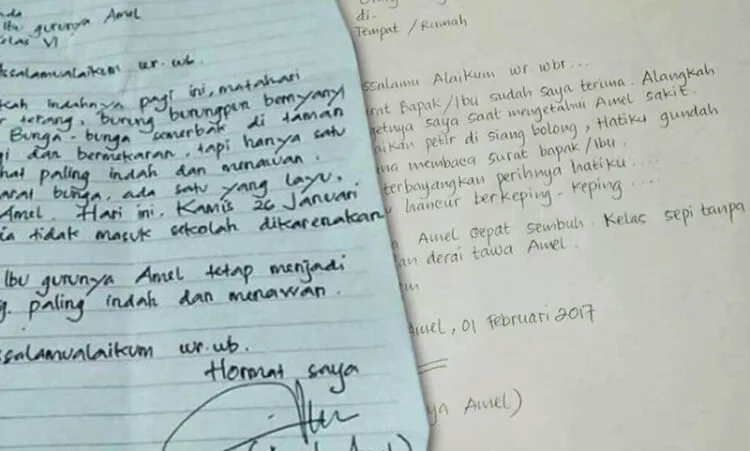 Ibu gurunya Amel
VI
wr.wb.
indahnya pagi ini, matahari
terang, burung burungpun bernyanyi
Bunga-bunga semerbak di taman
dan bermekaran, tapi hanya satu
paling indah dan menawan.
bunga, ada satu yang layu,
Amel. Hari ini, Kamis 26 Januari
tidak masuk sekolah dikarenakan
Ibu gurunya Amel tetap menjadi
paling indah dan menawan.
wr.wb.
Hormat saya
di.
Tempat / Rumah
Alaikum wr wbr...
Bapak/Ibu sudah saya terima. Alangkah
saya saat mengetahui Amel sakit.
petir di siang bolong, Hatiku gundah
membaca surat bapak/Ibu.
terbayangkan perihnya hatiku....
hancur berkeping-keping....
Amel cepat sembuh. Kelas sepi tanpa
derai tawa Amel.
Amel, 01 Februari 2017
Amel)